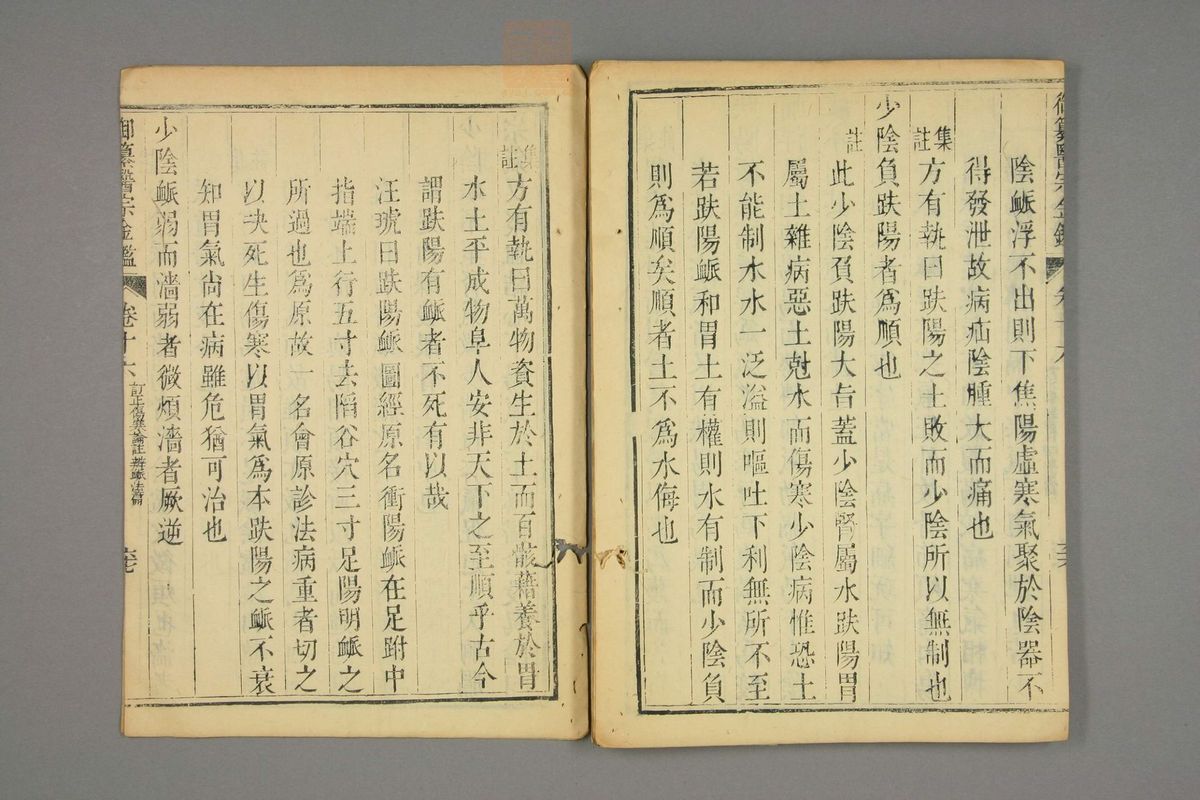 御纂醫宗金鑑
卷十六
陰脈浮不出則下焦陽虛寒氣聚於陰器不
得發泄故病疝陰腫大而痛也
集註
方有執曰趺陽之土敗而少陰所以無制也
少陰負趺陽者爲順也
註
此少陰負趺陽大旨蓋少陰腎屬水趺陽胃
屬土雜病惡土尅水而傷寒少陰病惟恐土
不能制水水一泛溢則嘔吐下利無所不至
若趺陽脈和胃土有權則水有制而少陰負
則爲順矣順者土不爲水侮也
集註
方有執曰萬物資生於土而百骸藉養於胃
水土平成物阜人安非天下之至順乎古今
謂趺陽有脈者不死有以哉
汪琥曰趺陽脈圖經原名衝陽脈在足跗中
指端上行五寸去陷谷穴三寸足陽明脈之
所過也爲原故一名會原診法病重者切之
以決死生傷寒以胃氣爲本趺陽之脈不衰
知胃氣尚在病雖危猶可治也
少陰脈弱而濇弱者微煩濇者厥逆
御纂醫宗金鑑
卷十六
訂正傷寒論註辨脈法篇